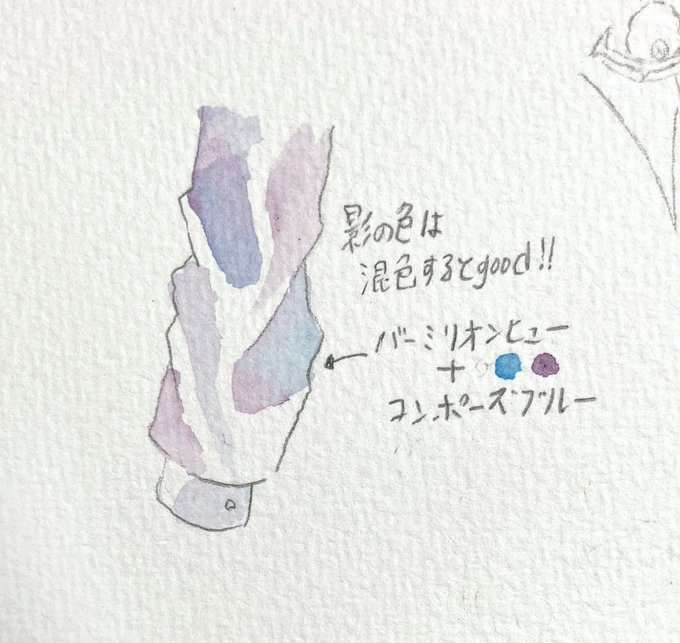 影の色は
混色するとgood!!
バーミリオンヒュー
+
コンポーズブルー